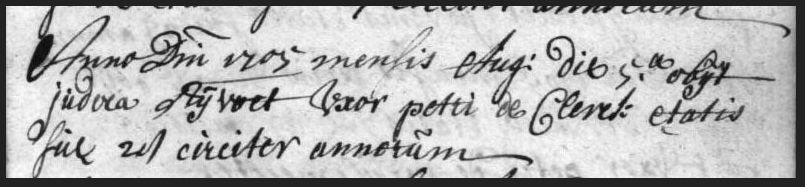 circiter annorum
Anno Dni 1705 mensis Aug: die 5.a obyt
judoca Rijvoet Uxor petri de Clerck etatis
suæ circiter annorum